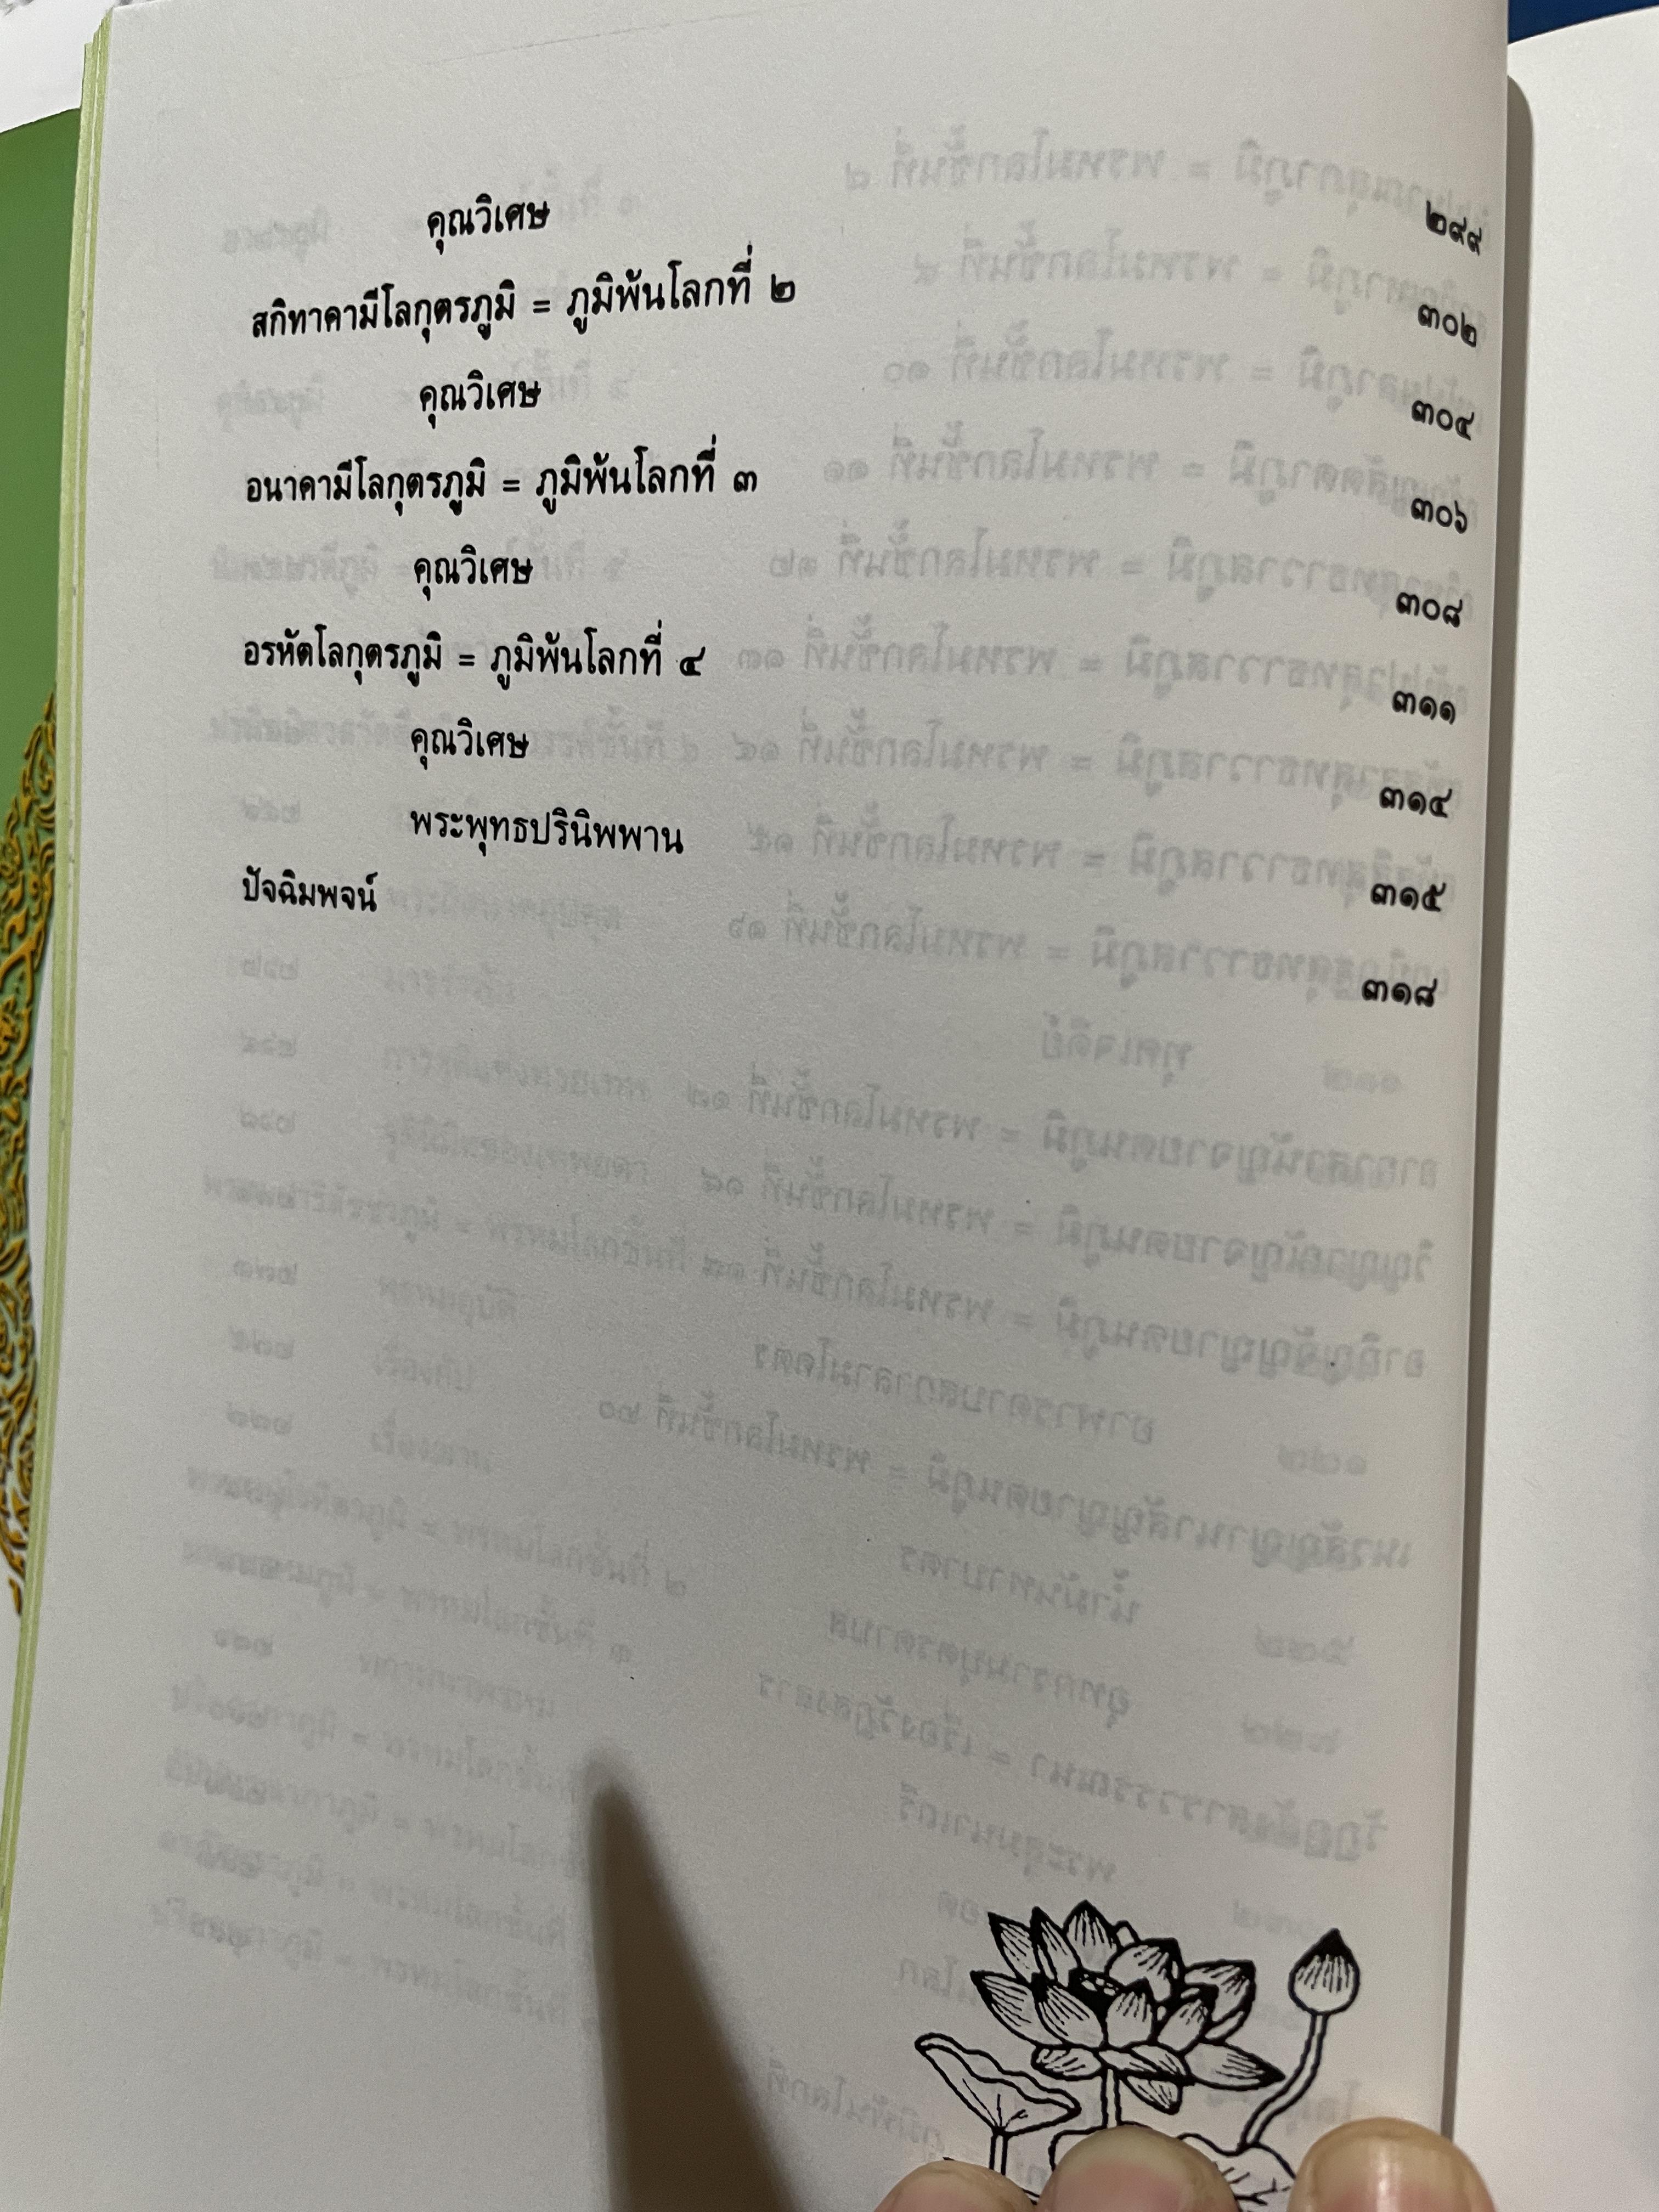 คุณวิเศษ ๒๙๙
สกิทาคามีโลกุตรภูมิ = ภูมิพ้นโลกที่ ๒ ๓๐๒
คุณวิเศษ ๓๐๔
อนาคามีโลกุตรภูมิ = ภูมิพ้นโลกที่ ๓ ๓๐๖
คุณวิเศษ ๓๐๘
อรหัตโลกุตรภูมิ = ภูมิพ้นโลกที่ ๔ ๓๑๑
คุณวิเศษ ๓๑๔
พระพุทธปรินิพพาน ๓๑๕
ปัจฉิมพจน์ ๓๑๘